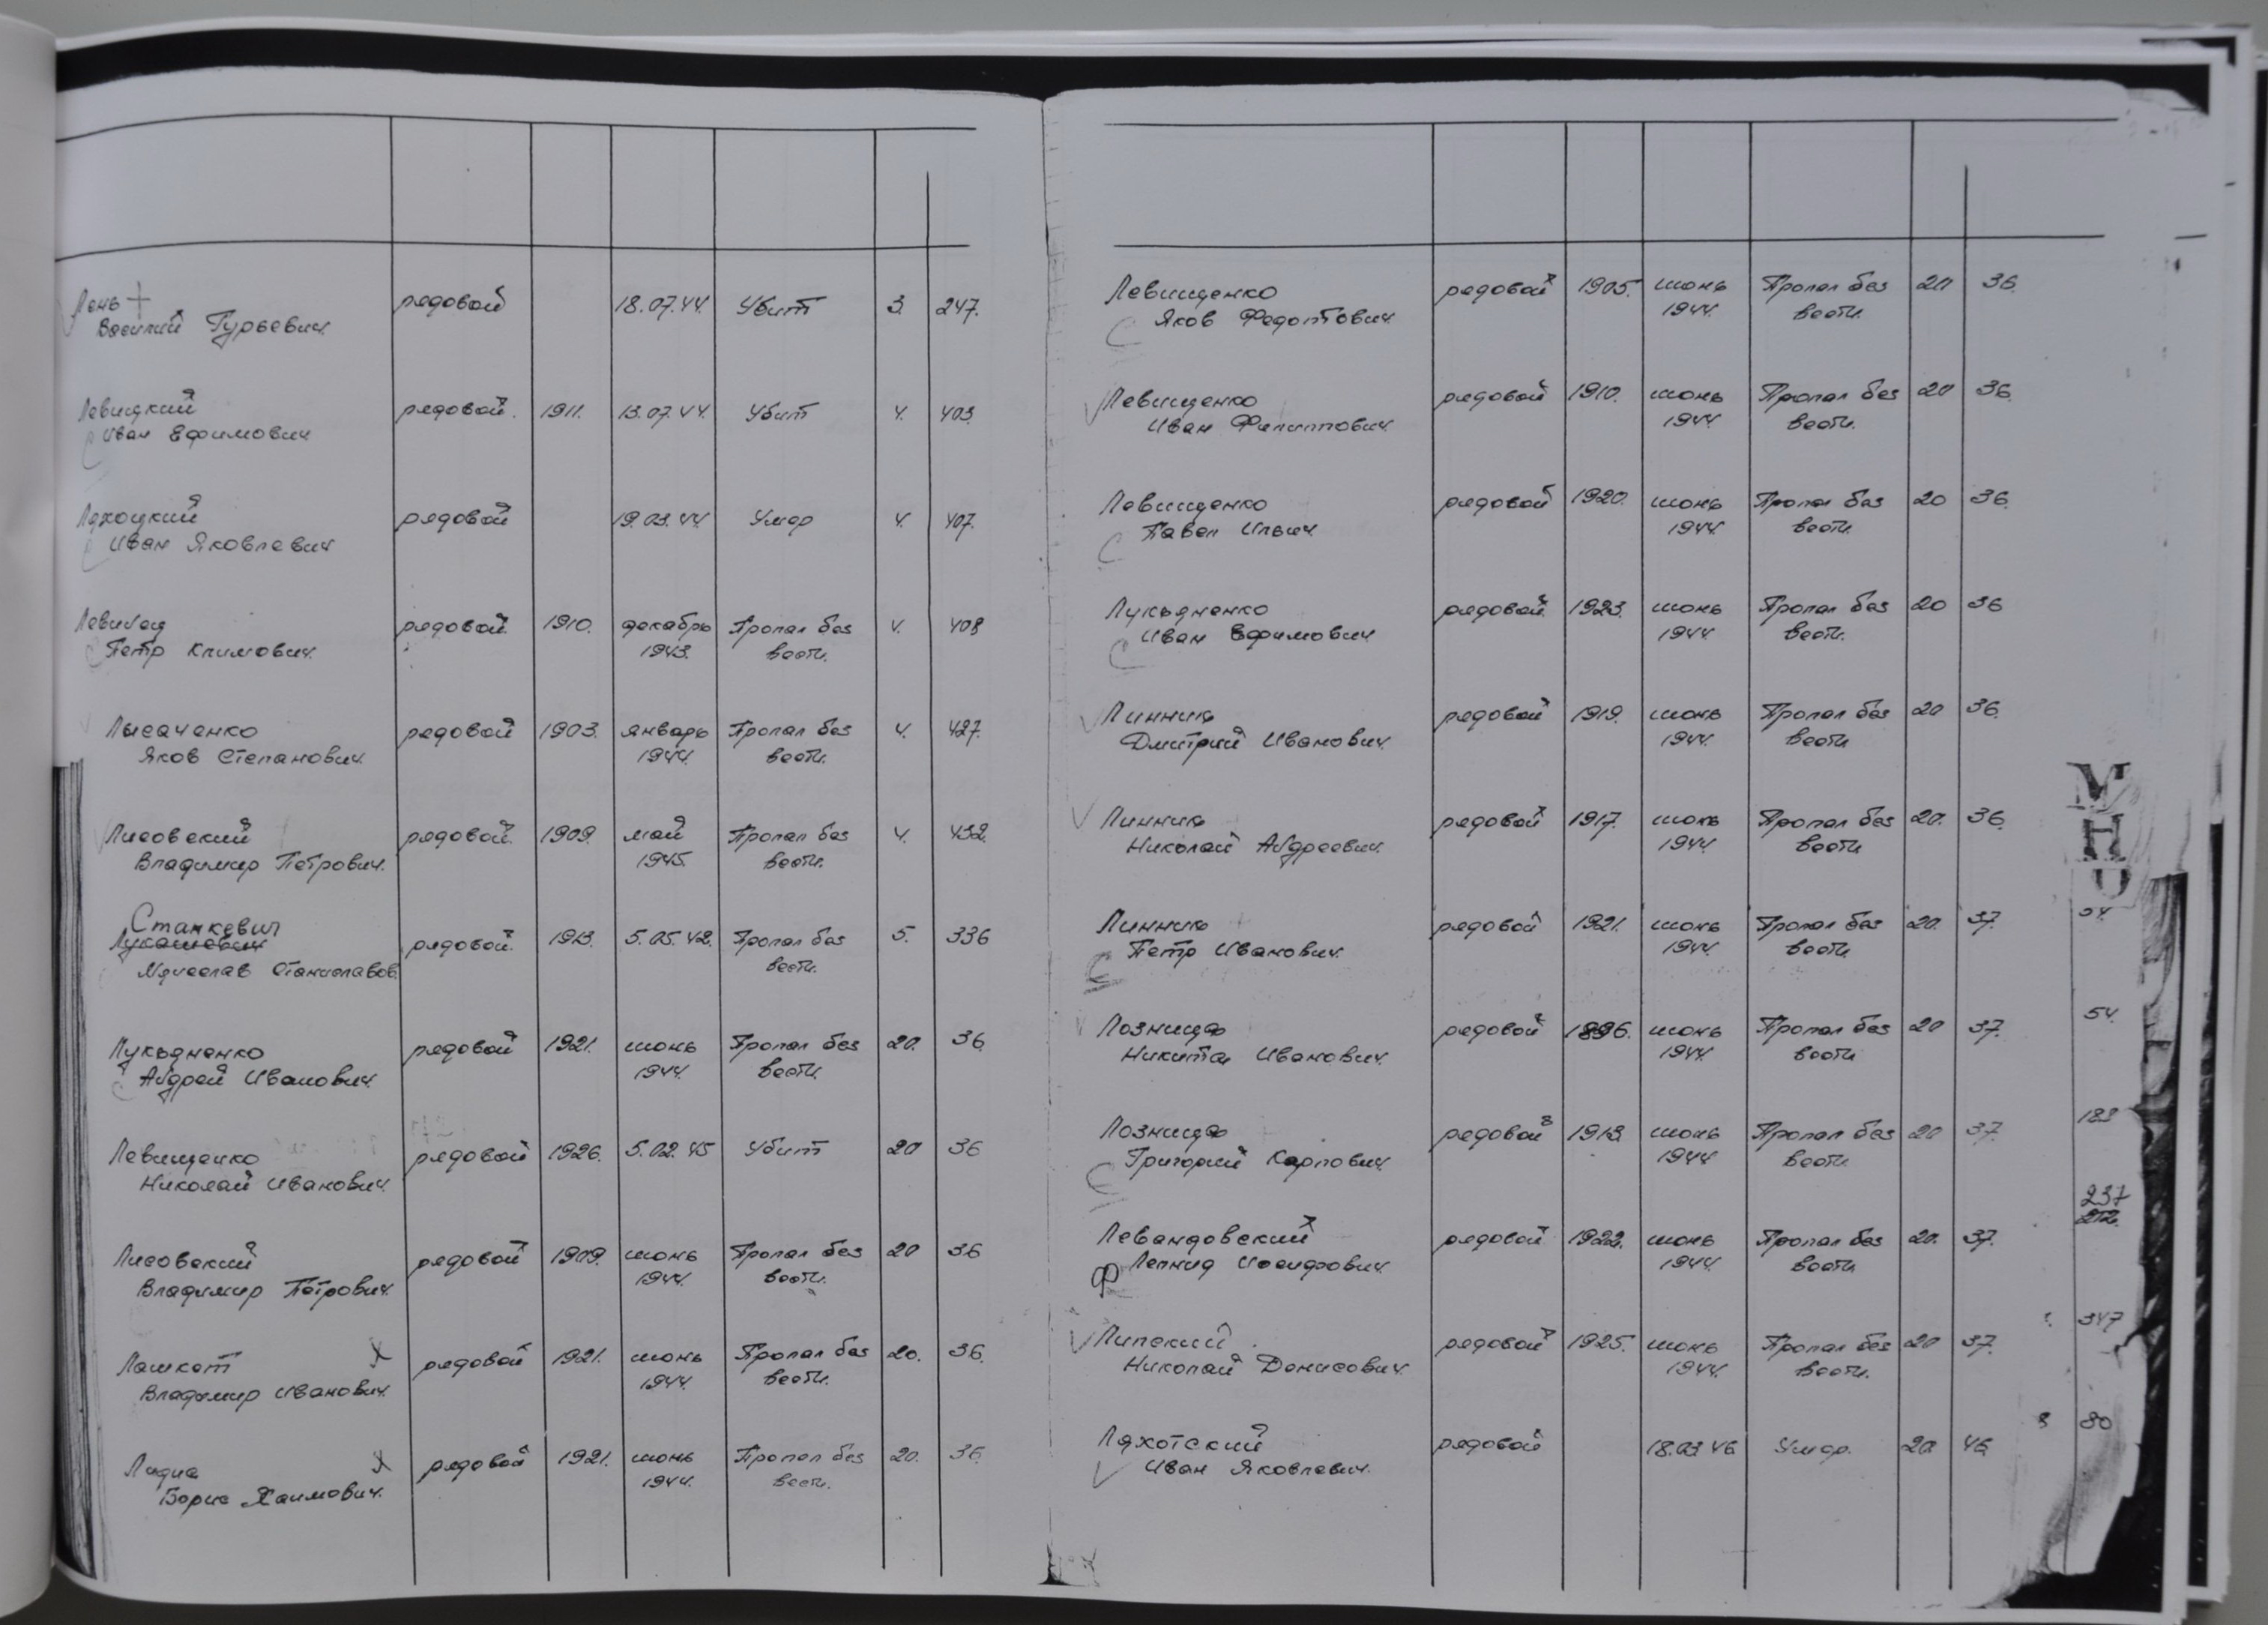 Лень рядовой 18.07.44. Убит 3. 247.
Василий Гурьевич.
Левицкий рядовой. 1911. 13.07.44. Убит 4. 403.
Иван Ефимович
Ляхоцкий рядовой 19.03.44 Умер 4. 407.
Иван Яковлевич
рядовой. 1910. декабрь Пропал без 4. 408
Петр Климович. 1943. вести.
Лысаченко рядовой 1903. январь Пропал без 4. 427.
Яков Степанович. 1944. вести.
Лисовский рядовой. 1909. май Пропал без 4. 432.
Владимир Петрович. 1945. вести.
Станкевич
Лукашевич рядовой. 1913. 5.05.42. Пропал без 5. 336
Мячеслав Станиславов. вести.
Лукьяненко рядовой 1921. июнь Пропал без 20. 36.
Андрей Иванович. 1944. вести.
Левищенко рядовой 1926. 5.02.45 Убит 20 36
Николай Иванович.
Лисовский рядовой 1909. июнь Пропал без 20 36
Владимир Петрович. 1944. вести.
Лашкет Х рядовой 1921. июнь Пропал без 20. 36.
Владимир Иванович. 1944. вести.
Х рядовой 1921. июнь Пропал без 20. 36.
Борис Хаимович. 1944. вести.
Левищенко рядовой 1905. июнь Пропал без 20 36.
Яков Федотович. 1944. вести.
Левищенко рядовой 1910. июнь Пропал без 20 36.
Иван Филиппович. 1944. вести.
Левищенко рядовой 1920. июнь Пропал без 20 36.
Павел Ильич. 1944. вести.
Лукьяненко рядовой. 1923. июнь Пропал без 20 36
Иван Ефимович 1944. вести.
Линник рядовой 1919. июнь Пропал без 20 36.
Дмитрий Иванович. 1944. вести
Линник рядовой 1917. июнь Пропал без 20. 36.
Николай Андреевич. 1944. вести
Линник рядовой 1921. июнь Пропал без 20. 37.
Петр Иванович. 1944. вести
Лозница рядовой 1896. июнь Пропал без 20 37. 54.
Никита Иванович. 1944. вести
Лозница рядовой 1913. июнь Пропал без 20 37.
Григорий Карпович. 1944 вести
237
Левандовский рядовой 1922. июнь Пропал без 20. 37.
Леонид Иосифович. 1944. вести
Липский рядовой 1925. июнь Пропал без 20 37. 347
Николай Денисович. 1944. вести.
Ляхотский рядовой 18.03.46 Умер. 20 46. 80
Иван Яковлевич.
М
Н
О